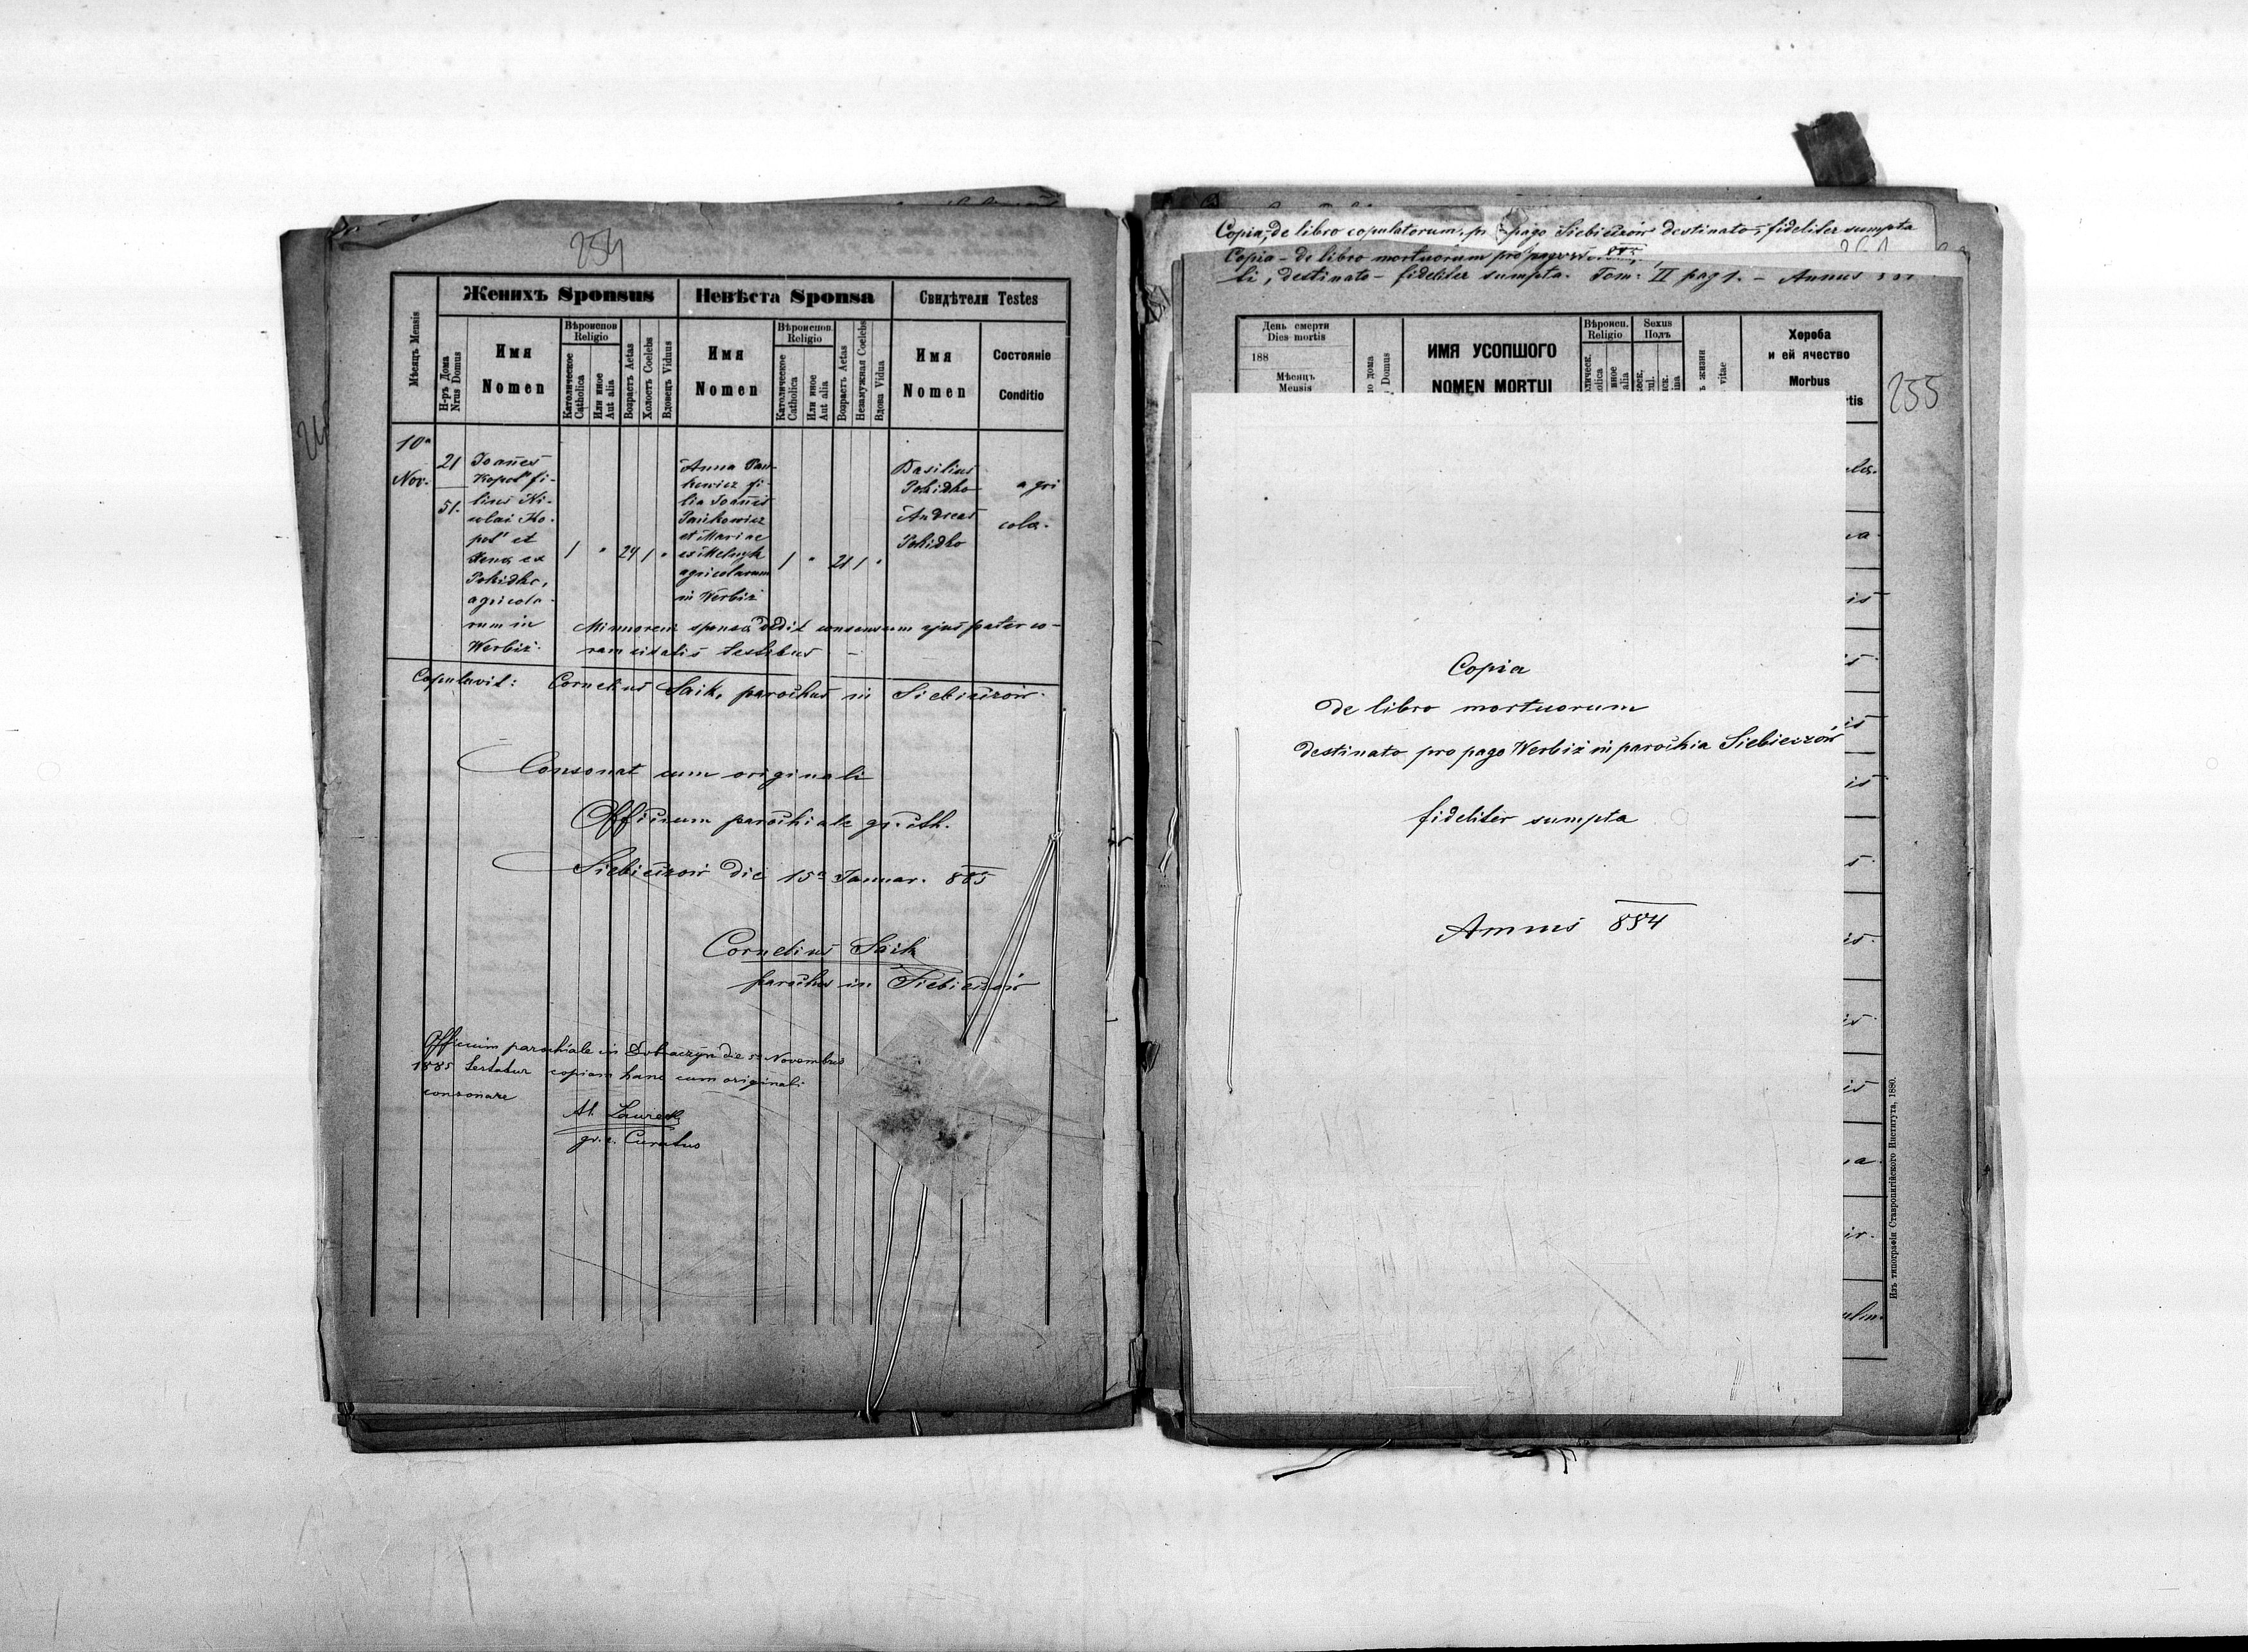 254
Женихъ Sponsus
Невѣста Sponsa
Свидѣтели Testes
Мѣсяцъ Mensis
Н-ръ Дома
Nrus Domus
Имя
Nomen
Вѣроиспов
Religio
Католическое
Catholica
Или иное
Aut alia
Возрастъ Aetas
Холостъ Coelebs
Вдовецъ Viduus
Имя
Nomen
Вѣроиспов.
Religio
Католическое
Catholica
Или иное
Aut alia
Возрастъ Aetas
Незамужная Coelebs
Вдова Vidua
Имя
Nomen
Состояніе
Conditio
10a
Nov.
21
51.
Joañes
Kopot fi-
lius Ni-
colai Ko-
pot et
ex
Pokidko,
agricola-
rum in
Werbiż.
1 " 24 1 "
Anna Pań-
kowicz fi-
lia Joañis
Pańkowicz
et Mariae
ex Melnyk
agricolarum
in Werbiż
1 " 21 1 "
Basilius
Pokidko
Andreas
Pokidko
agri
colae.
Minnoreni sponsa dedit consensum ejus pater co-
ram citatis testibus –
Copulavit: Cornelius Saik, parochus in Siebieczów.
Consonat cum originali
Officium parochiale gr. cth.
Siebieczów die 15a Januar. 885
Cornelius Saik
parochus in Siebieczów
Officium parochiale in die 5 Novembris
1885 testatur copiam hanc cum originali
consonare
Al. Laurecki
gr. c. Curatus
Copia, de libro copulatorum, pago Siebieczów destinato, fideliter sumpta
Copia - de libro mortuorum pro pago
li, destinato - fideliter sumpta. Tom: II pag 1. - Annus
День смерти
Dies mortis
188
Мѣсяцъ
Mensis
Domus
ИМЯ УСОПШОГО
NOMEN MORTUI
Вѣроисп.
Religio
Sexus
Полъ
vitae
Хороба
и ей ячество
Morbus
255
Copia
de libro mortuorum
destinato pro pago Werbiż in parochia Siebieczów
fideliter sumpta
Annus 884
Изъ типографіи Ставропигійского Института, 1880.